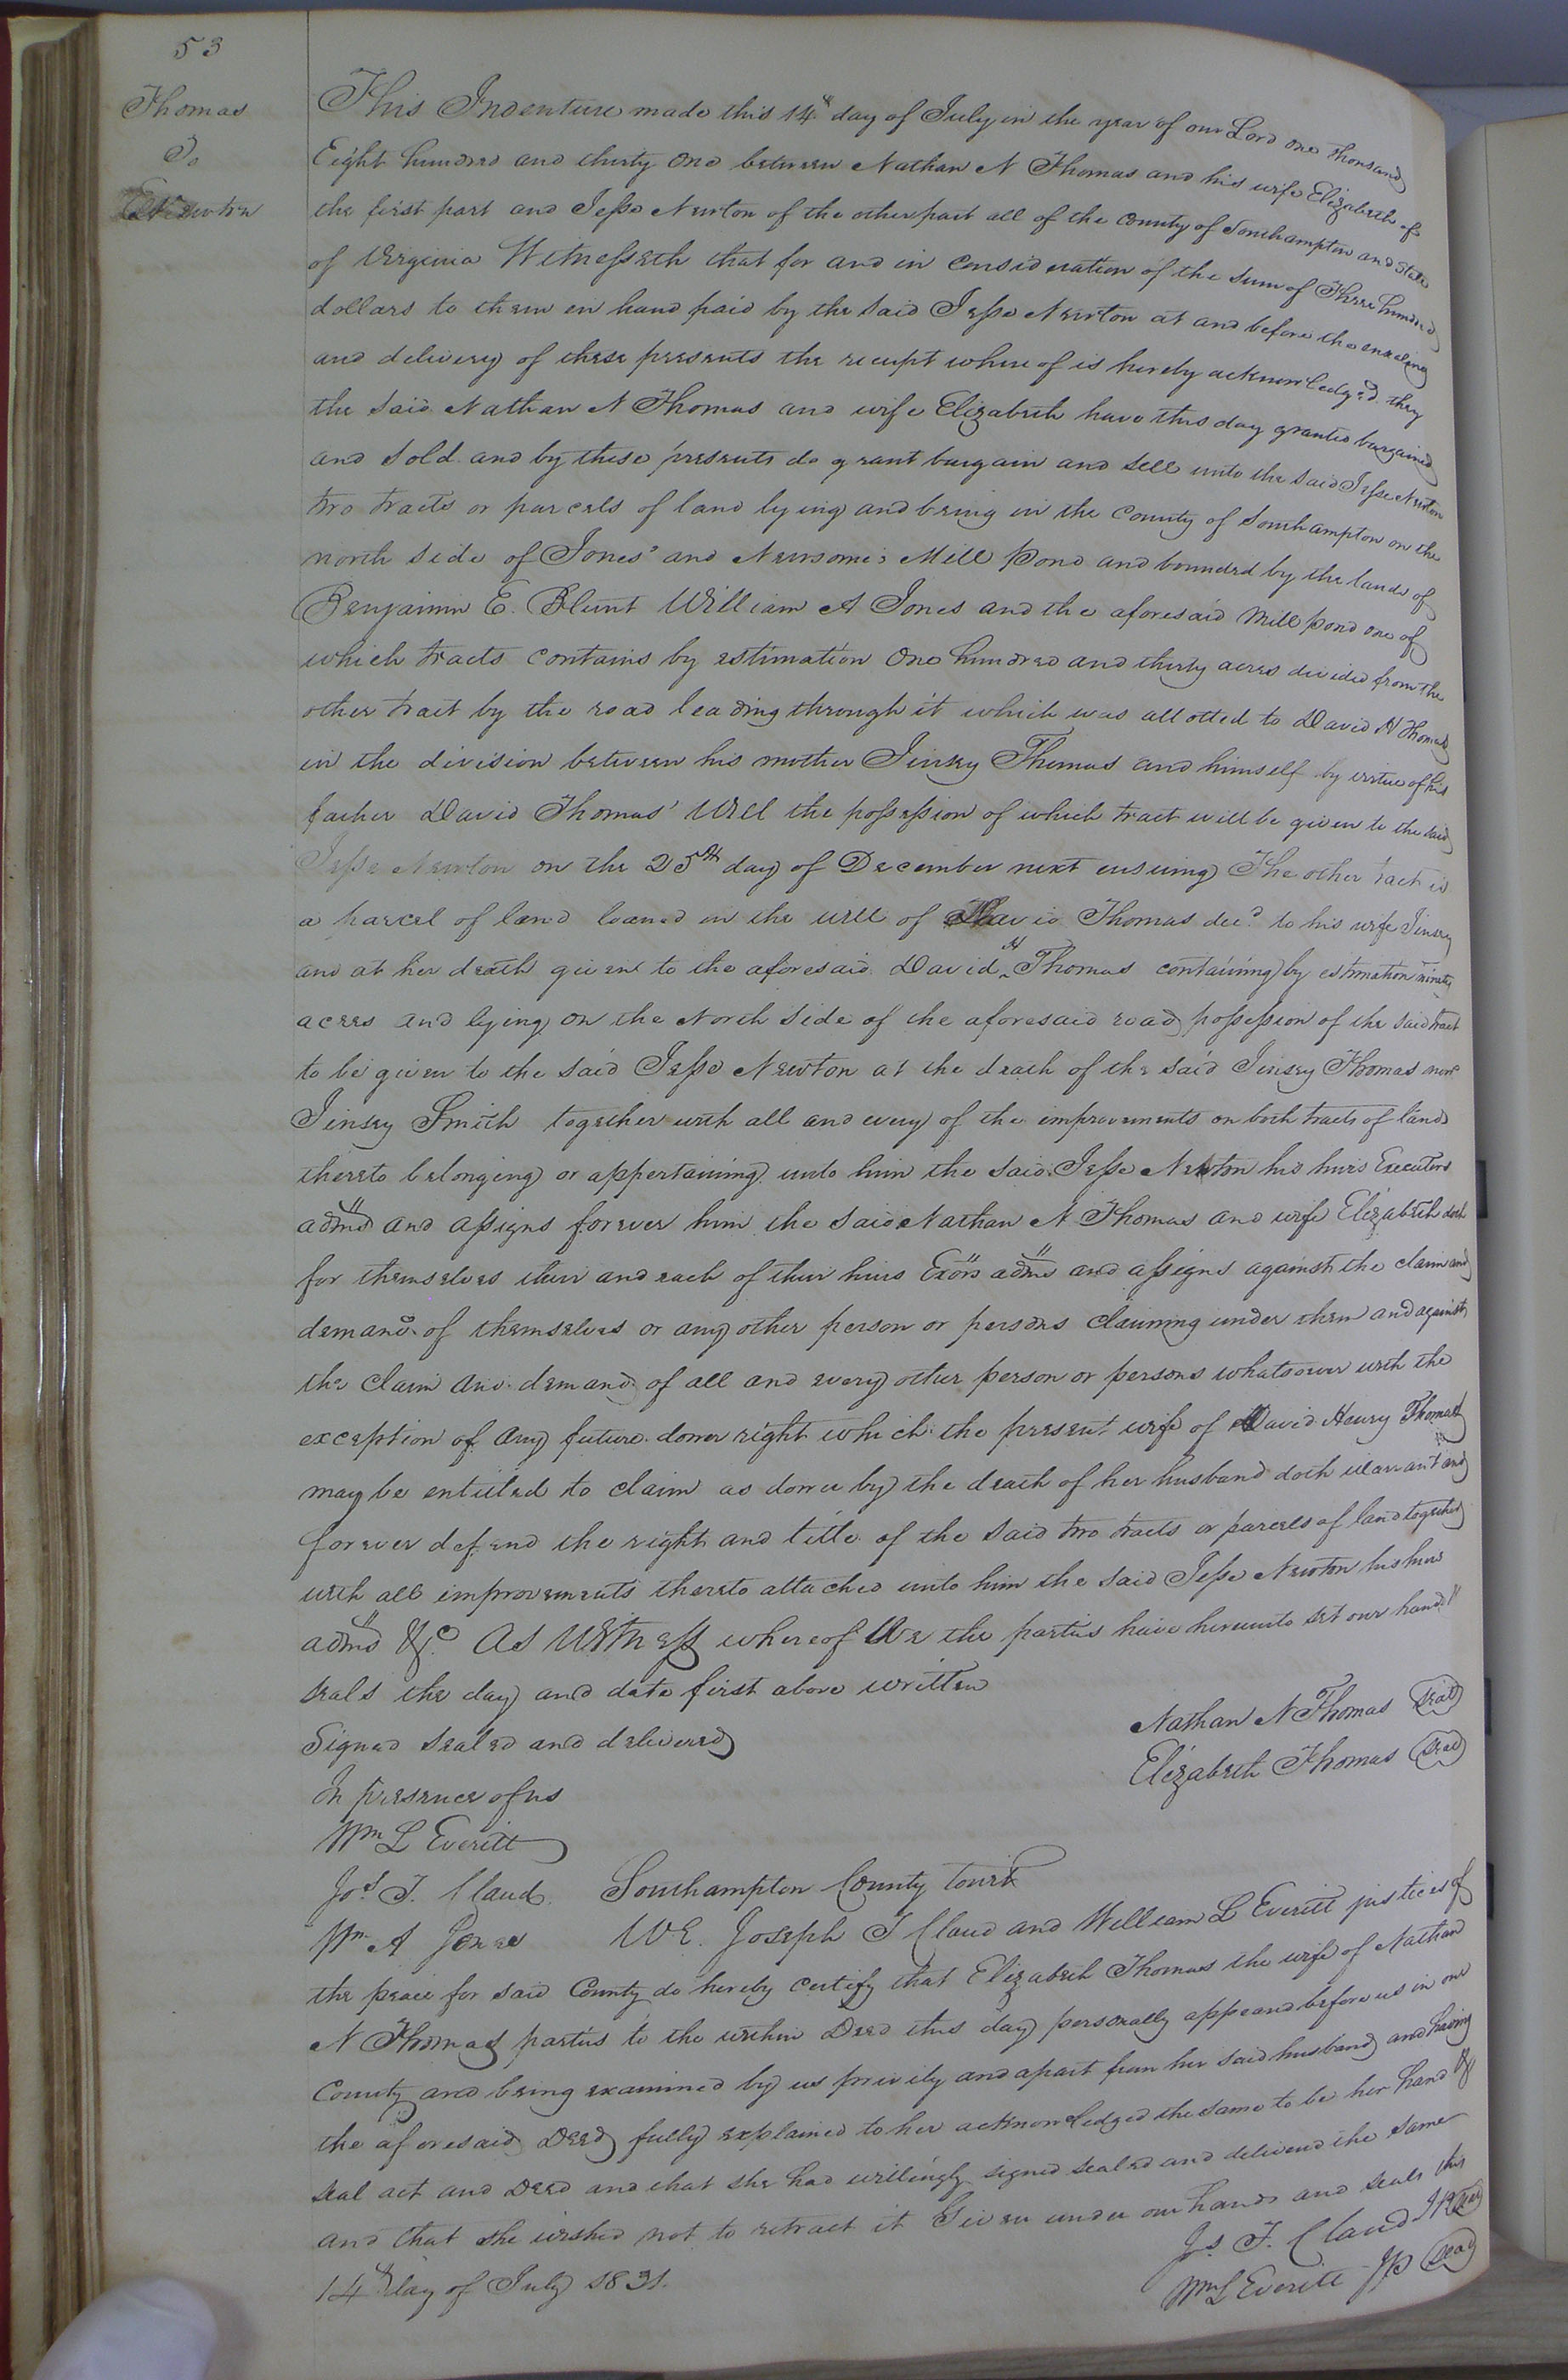 53
Thomas
To
Newton
This Indenture made this 14th day of July in the year of our Lord one thousand
Eight hundred and thirty one between Nathan N Thomas and his wife Elizabeth of
the first part and Jesse Newton of the other part all of the County of Southampton and State
of Virginia Witnesseth that for and in consideration of the sum of Three hundred
dollars to them in hand paid by the said Jesse Newton at and before the ensealing
and delivery of these presents the receipt whereof is hereby acknowledged they
the said Nathan N Thomas and wife Elizabeth have this day granted bargained
and sold and by these presents do grant bargain and sell unto the said Jesse Newton
two tracts or parcels of land lying and being in the County of Southampton on the
north side of Jones' and Newsome's Mill Pond and bounded by the lands of
Benjamin E. Blunt William A Jones and the aforesaid Mill pond one of
which tracts contains by estimation One hundred and thirty acres divided from the
other tract by the road leading through it which was allotted to David H Thomas
in the division between his mother Jinsey Thomas and himself by virtue of his
father David Thomas' Will the possession of which tract will be given to the said
Jesse Newton on the 25th day of December next ensuing The other tract is
a parcel of land loaned in the will of David Thomas decd to his wife Jinsey
and at her death given to the aforesaid David H Thomas containing by estimation ninety
acres and lying on the North Side of the aforesaid road possession of the said tract
to be given to the said Jesse Newton at the death of the said Jinsey Thomas now
Jinsey Smith together with all and every of the improvements on both tracts of land
thereto belonging or appertaining unto him the said Jesse Newton his heirs Executors
adms and assigns forever him the said Nathan N Thomas and wife Elizabeth doth
for themselves their and each of their heirs Exors adms and assigns against the claim and
demand of themselves or any other person or persons claiming under them and against
the claim and demand of all and every other person or persons whatsoever with the
exception of any future dower right which the present wife of David Henry Thomas
may be entitled to claim as dower by the death of her husband doth warrant and
forever defend the right and title of the said two tracts or parcels of land together
with all improvements thereto attached unto him the said Jesse Newton his heirs
adms &c. As Witness whereof We the parties have hereunto set our hands
seals the day and date first above written
Signed sealed and delivered
In presence of us
Nathan N Thomas Seal
Elizabeth Thomas Seal
Wm L Everitt
Jos. T. Claud
Wm A Jones
Southampton County Court
We. Joseph T Claud and William L Everitt justices of
the peace for said County do hereby certify that Elizabeth Thomas the wife of Nathan
N Thomas parties to the within Deed this day personally appeared before us in our
County and being examined by us privily and apart from her said husband and having
the aforesaid Deed fully explained to her acknowledged the same to be her hand &
seal act and Deed and that she had willingly signed sealed and delivered the same
and that she wished not to retract it Given under our hands and seals this
14th day of July 1831.
Js T. Claud JP Seal
Wm L Everitt JP Seal